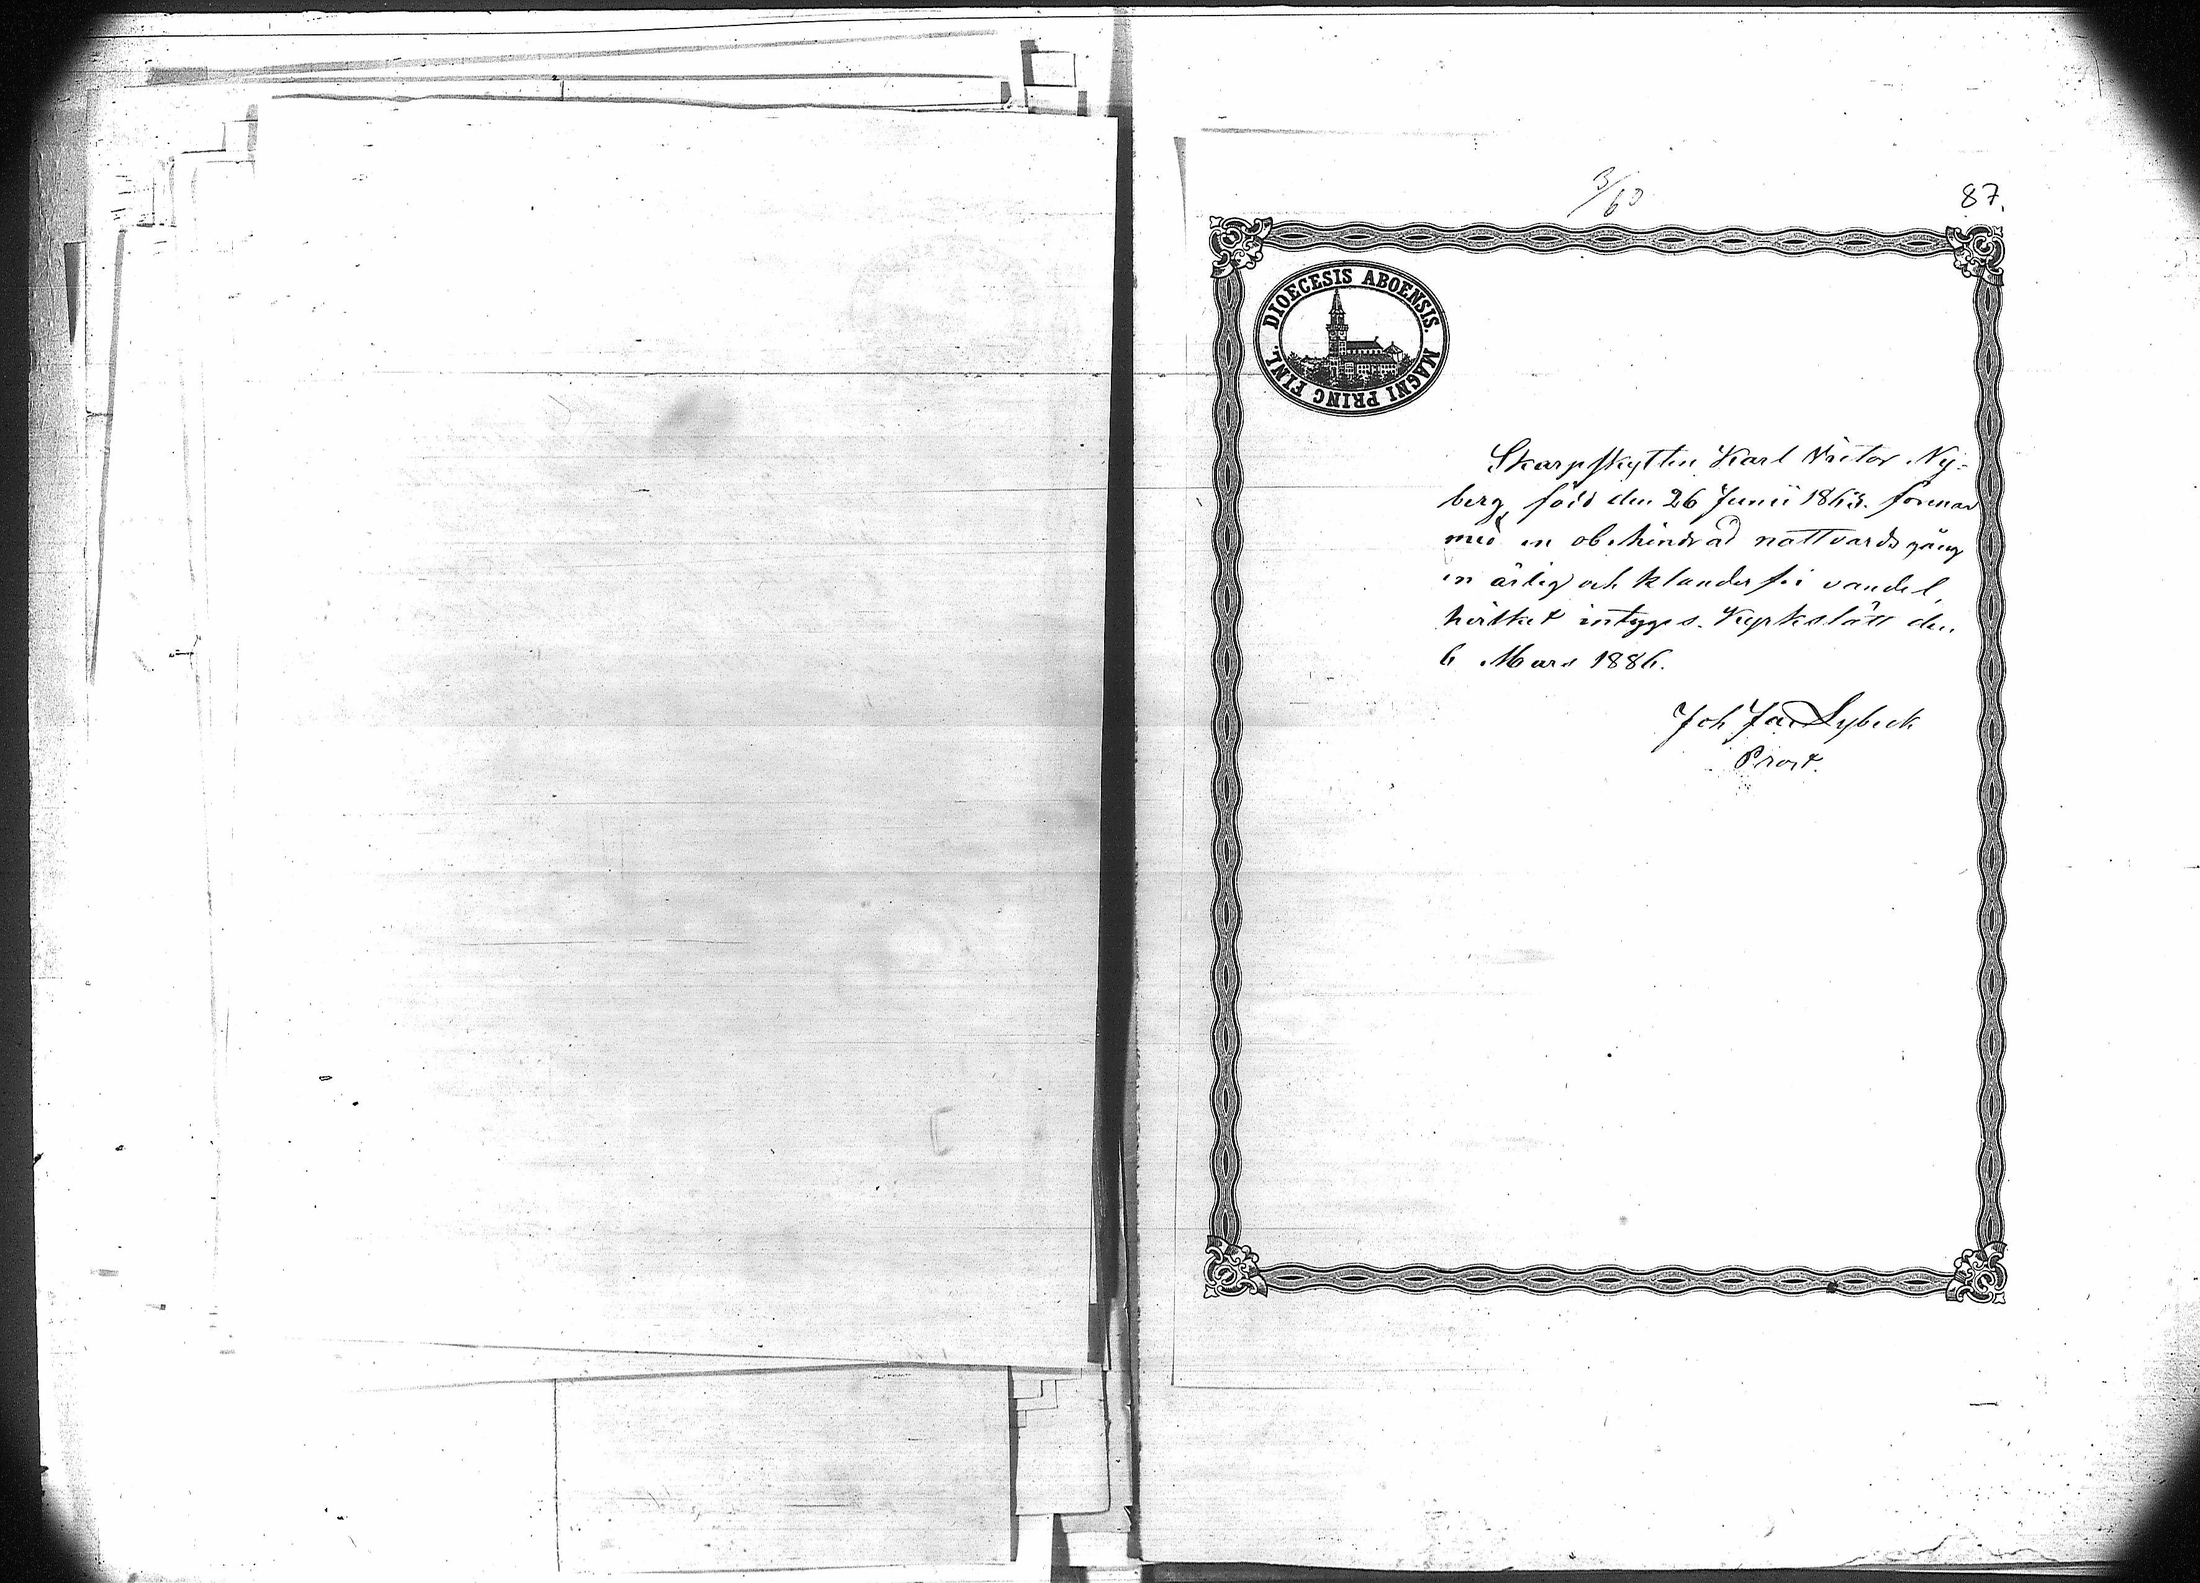 3/60
87.
DIOECESIS ABOENSIS. MAGNI PRINC FINL.
Skarpskytten Karl Victor Ny-
berg, född den 26 Junii 1863. förenar
med en obehindrad nattvardsgång
en ärlig och klanderfri vandel,
hvilket intygas. Kyrkslätt den
6 Mars 1886.
Joh Jac Lybeck
Prost.